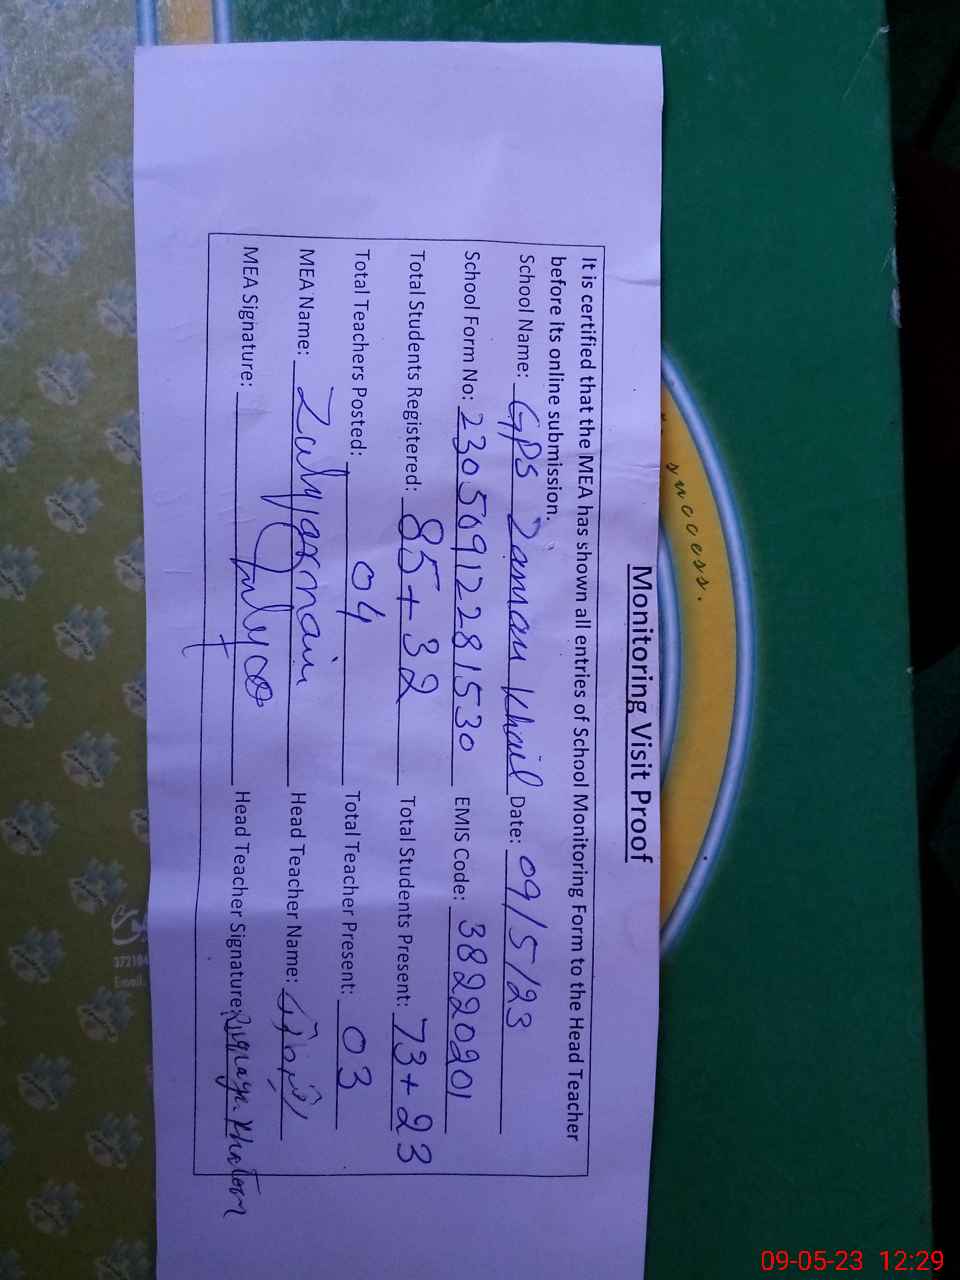 Monitoring Visit Proof
It is certified that the MEA has shown all entries of School Monitoring Form to the Head Teacher
before its online submission.
School Name: GPS Zaman Khail Date: 09/5/23
School Form No: 230509122281530 EMIS Code: 38220201
Total Students Registered: 85+32 Total Students Present: 73+23
Total Teachers Posted: 04 Total Teacher Present: 03
MEA Name: Zulqarnain Head Teacher Name:
MEA Signature: Head Teacher Signature: Ruqaya Khatoon
success.
372104
Email.
09-05-23 12:29